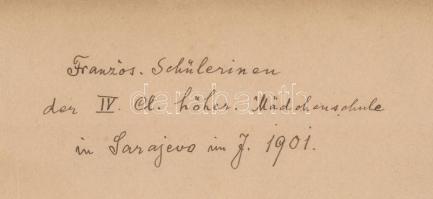 Französ. Schülerinen
der IV. Cl. höher. Mädchenschule
in Sarajevo im J. 1901.
darabanth